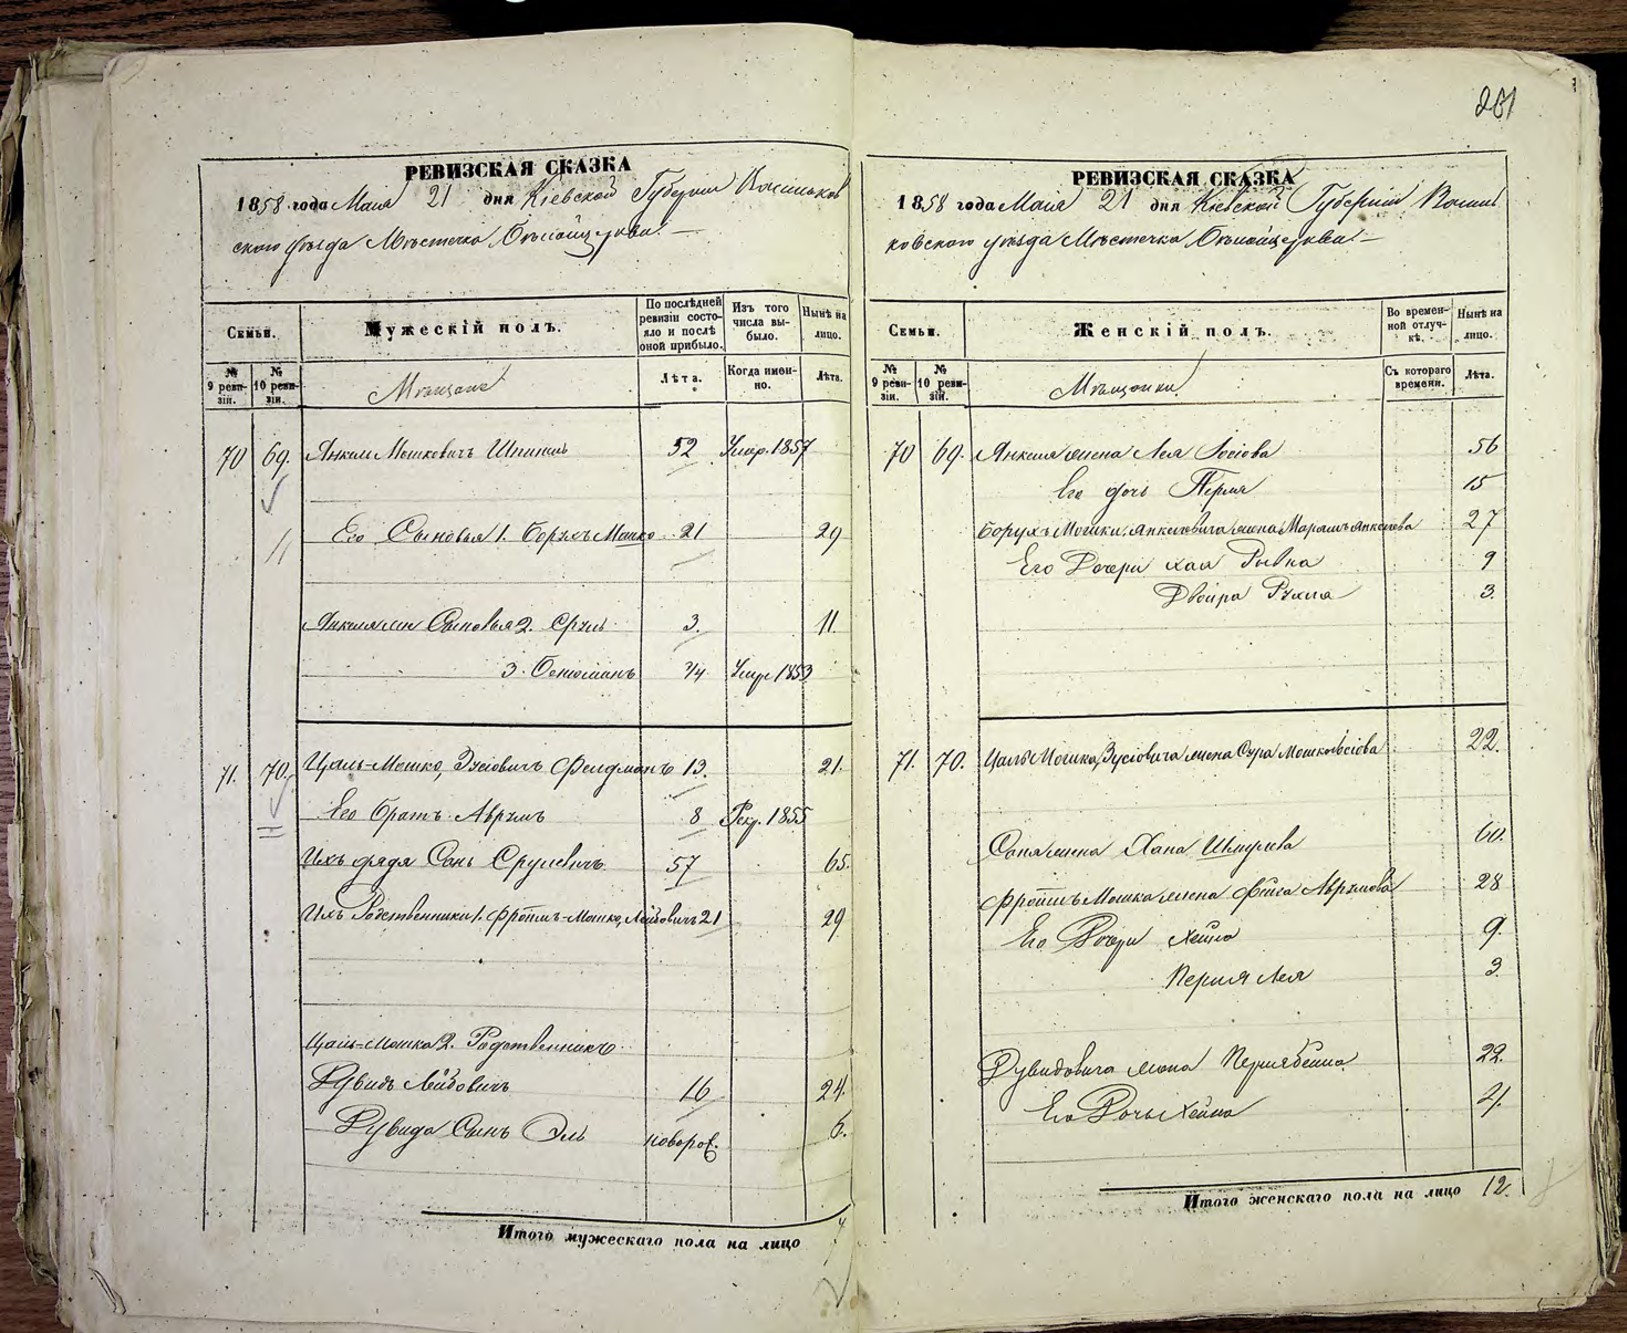 261
РЕВИЗСКАЯ СКАЗКА
1858 года Мая 21 дня Кіевской Губерніи Васильков
скаго уѣзда Мѣстечка Бѣлойцеркви.
Семьи.
Мужескій полъ.
По послѣдней ревизіи состояло и послѣ оной прибыло.
Изъ того числа выбыло.
Нынѣ на лицо.
№ 9 ревизіи.
№ 10 ревизіи.
Мѣщане
Лѣта.
Когда именно.
Лѣта.
70 69. Янкель Мошковичъ 52 Умер. 1857
Его Сыновья 1. Борухъ Мошко 21 29
Сыновья 2. Сруль 3. 11.
3. 3/4 Умер 1853
71. 70. Цаль-Мошко, Зусіовичъ Фелдманъ 13. 21.
Его братъ Аврумъ 8 Рекр. 1855
Ихъ дядя Срулевичъ 57 65.
Ихъ Родственники 1. Фроимъ-Мошко, Лейбовичъ 21 29
Цаль-Мошка 2. Родственникъ
Дувидъ Лейбовичъ 16 24.
Дувида Сынъ Эль новорож. 6.
Итого мужескаго пола на лицо 7
РЕВИЗСКАЯ СКАЗКА
1858 года Мая 21 дня Кіевской Губерніи Васил
ковскаго уѣзда Мѣстечка Бѣлойцеркви.
Семьи.
Женскій полъ.
Во временной отлучкѣ.
Нынѣ на лицо.
№ 9 ревизіи.
№ 10 ревизіи.
Мѣщанки
Съ котораго времени.
Лѣта.
70 69. Янкеля жена Лея Іосіова 56
Его дочь Перля 15
Борухъ Мошки, Янкелевича жена Марямъ Янкелева 27
Его Дочери Хая Рывка 9
Двойра Рухля 3.
71. 70. Цаль Мошка, Зусіовича жена Сура Мошкова 22.
жена Хана Шмулева 60.
Фроимъ Мошка жена Фейга Аврумова 28
Его Дочери Хейна 9.
Перля Лея 3.
Дувидовича жена Перля Бейна 22.
Его Дочь Хейна
Итого женскаго пола на лицо 12.